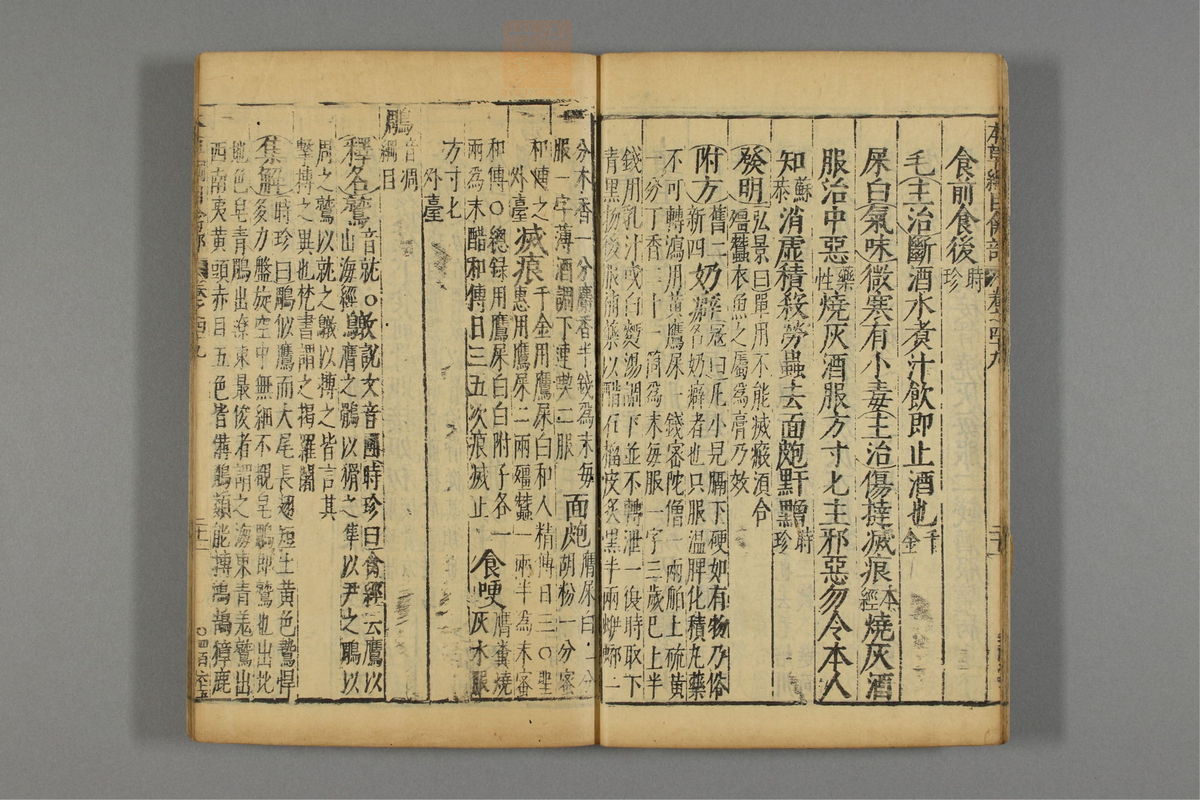 本草綱目禽部 卷之四十九
食前食後時珍
毛主治斷酒水煮汁飲即止酒也千金
屎白氣味微寒有小毒主治傷撻滅痕本經燒灰酒
服治中惡藥性燒灰酒服方寸匕主邪惡勿令本人
知蘇恭消虛積殺勞蟲去面皰䵟䵳時珍
發明弘景曰單用不能滅瘢須合
殭蠶衣魚之屬爲膏乃效
附方舊二新四奶癖寇曰凡小兒膈下硬如有物乃俗
名奶癖者也只服溫脾化積丸藥
不可轉瀉用黃鷹屎一錢密陀僧一兩舶上硫黃
一分丁香二十一箇爲末每服一字三歲巳上半
錢用乳汁或白麪湯調下並不轉泄一復時取下
青黑物後服補藥以醋石榴皮炙黑半兩蛜蝌一
分木香一分麝香半錢爲末每
服一字薄酒調下連喫二服
面皰鷹屎白二分胡粉一分蜜
和傅之外臺滅痕千金用鷹屎白和人精傅日三〇聖
惠用鷹屎二兩殭蠶一兩半爲末蜜
和傅〇總錄用鷹屎白白附子各一
兩爲末醋和傅日三五次痕滅止
食哽鷹糞燒灰水服
方寸匕外臺
鵰音凋
綱目
釋名鷲音就〇山海經鷻說文音團時珍曰禽經云鷹以
膺之鶻以猾之隼以尹之鵰以
周之鷲以就之鷻以搏之皆言其
擊搏之異也梵書謂之揭羅闍
集解時珍曰鵰似鷹而大尾長翅短土黃色鷙悍
多力盤旋空中無細不覩皂鵰即鷲也出北
地色皂青鵰出遼東最俊者謂之海東青羌鷲出
西南夷黃頭赤目五色皆備鵰類能搏鴻鵠獐鹿